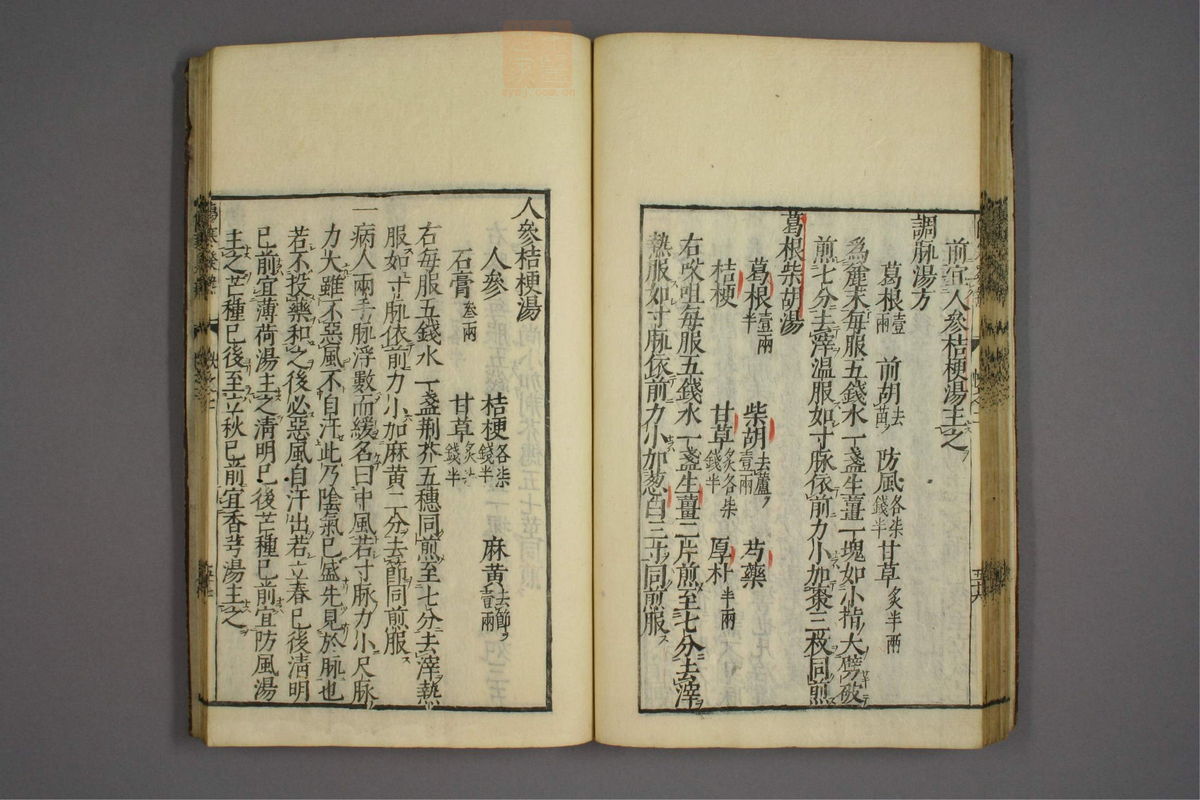 前宜人參桔梗湯主之
調脉湯方
葛根壹兩 前胡去苗 防風各柒錢半 甘草炙半兩
爲麄末每服五錢水一盞生薑一塊如小指大劈破
煎七分去滓温服如寸脉依前力小加棗三枚同煎
葛根柴胡湯
葛根壹兩半 柴胡去蘆壹兩 芍藥
桔梗 甘草炙各柒錢半 厚朴半兩
右㕮咀每服五錢水一盞生薑二片煎至七分去滓
熱服如寸脉依前力小加葱白三寸同煎服
人參桔梗湯
人參 桔梗各柒錢半 麻黃去節壹兩
石膏叁兩 甘草炙錢半
右每服五錢水一盞荆芥五穗同煎至七分去滓熱
服如寸脉依前力小加麻黃二分去節同煎服
一病人兩手脉浮數而緩名曰中風若寸脉力小尺脉
力大雖不惡風不自汗此乃陰氣已盛先見於脉也
若不投藥和之後必惡風自汗出若立春已後淸明
已前宜薄荷湯主之淸明已後芒種已前宜防風湯
主之芒種已後至立秋已前宜香芎湯主之